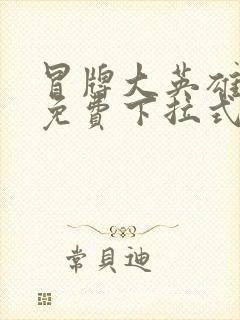 冒牌大英雄
免費下拉式
常貝迪